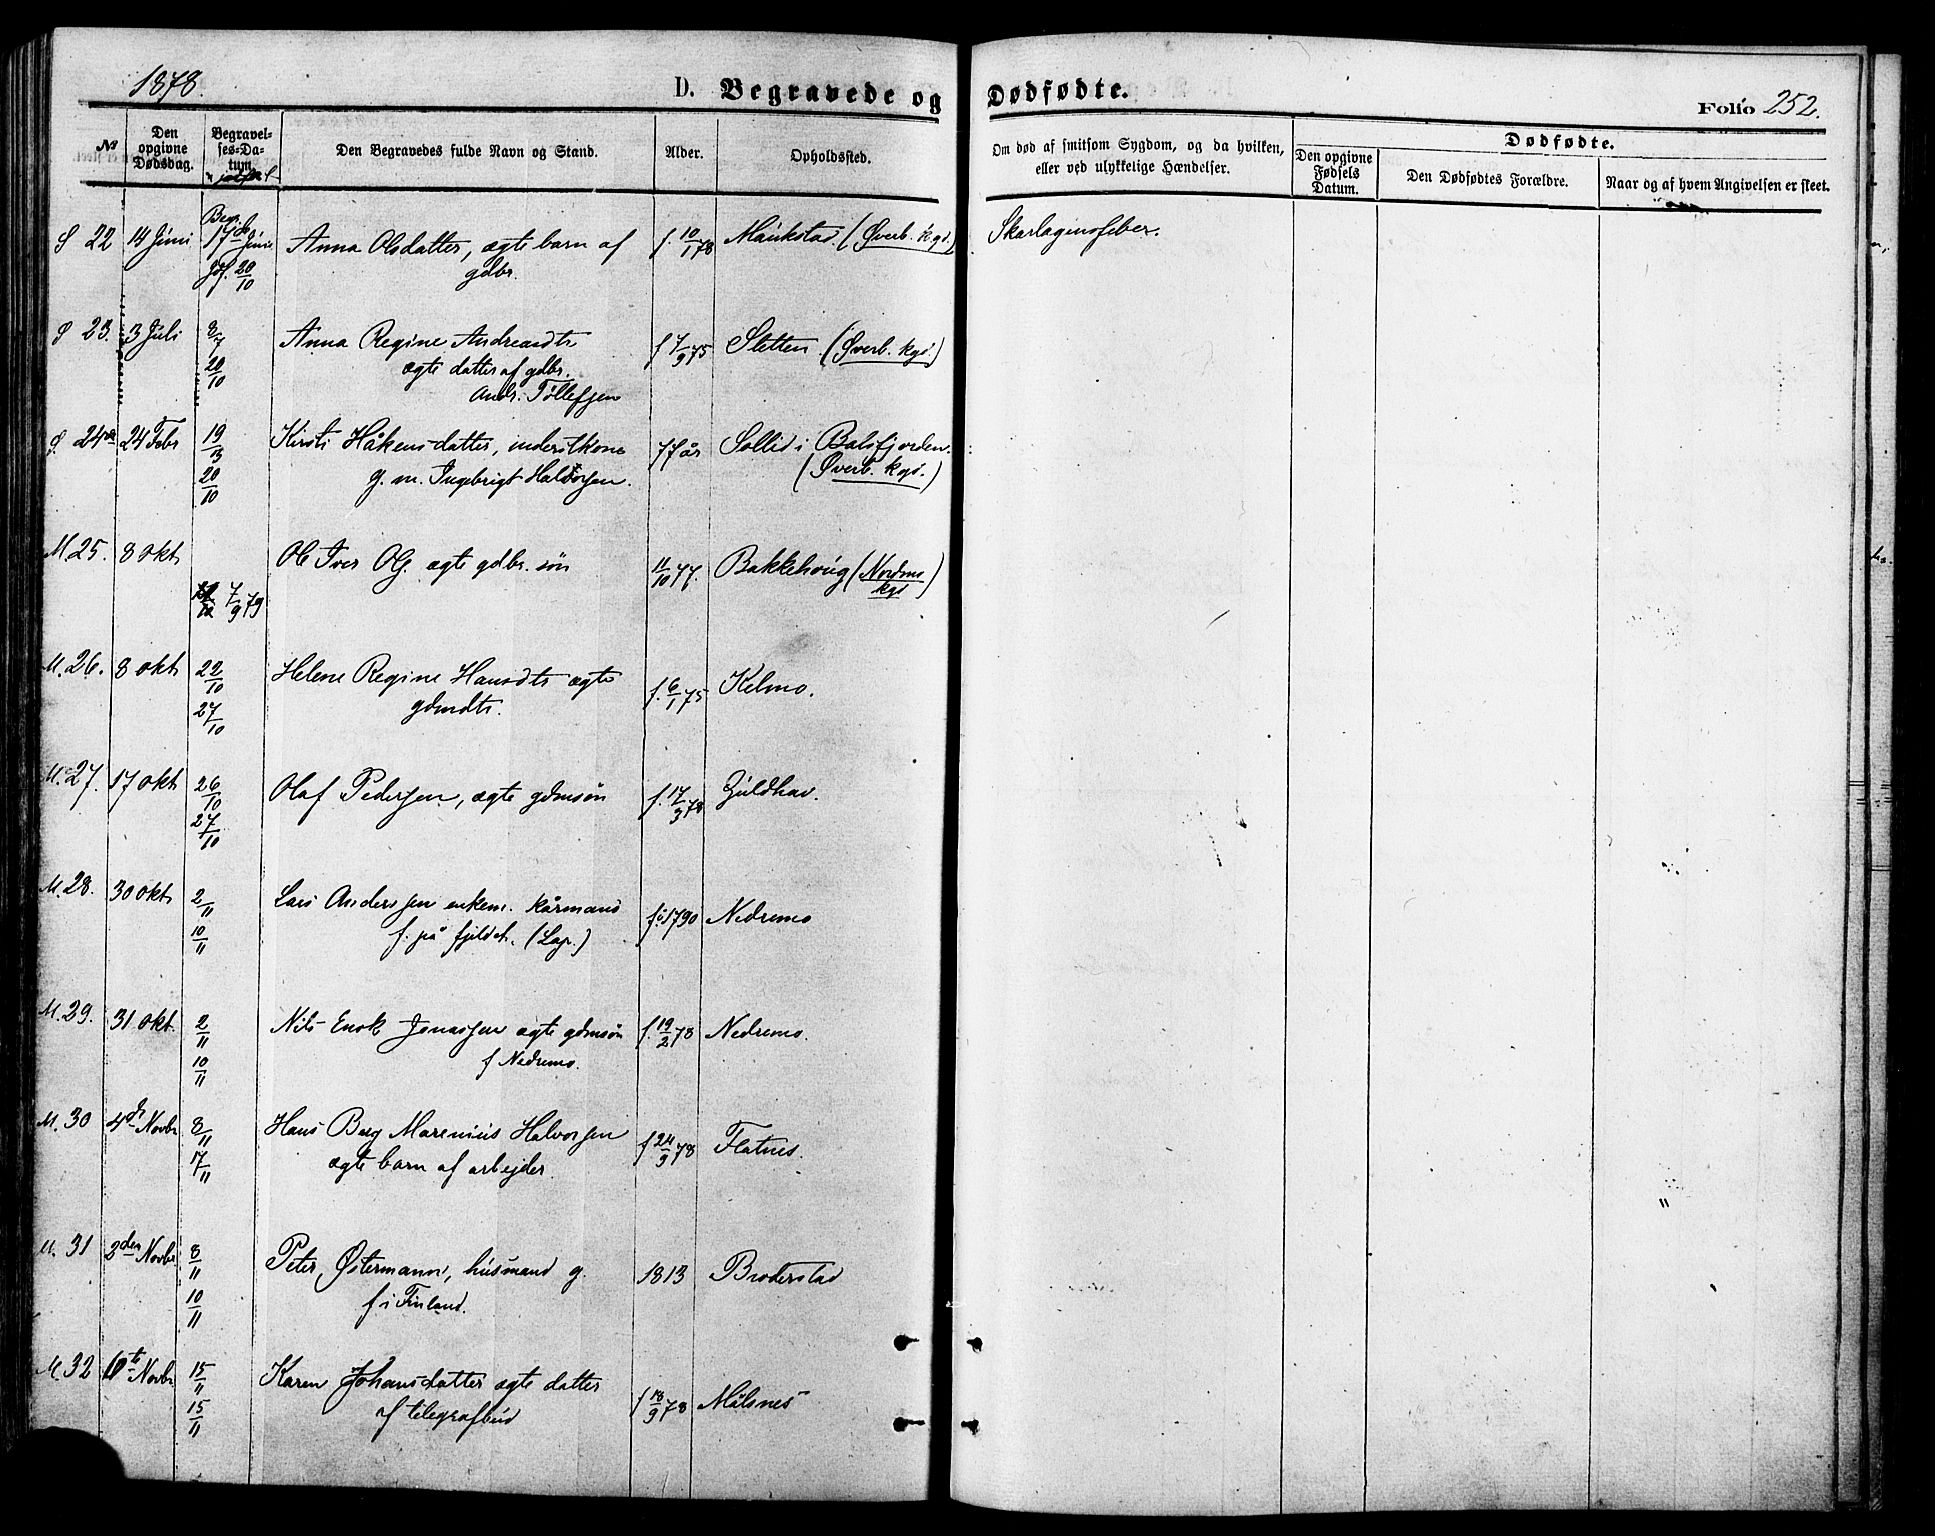 1878.
D. Begravede og Dødfødte.
Folio 252.
No
Den opgivne Dødsdag.
Begravelses-Datum
Den Begravedes fulde Navn og Stand.
Alder.
Opholdssted.
Om død af smitsom Sygdom, og da hvilken, eller ved ulykkelige Hændelser.
Dødfødte.
Den opgivne Fødsels Datum.
Den Dødfødtes Forældre.
Naar og af hvem Angivelsen er skeet.
S 22 14 Juni Begr. 17de Juni Anna Olsdatter, ægte barn af f. 10/1 78 Maukstad. (Øverb. kgd.) Skarlaginsfeber.
Jdf. 20/10 gdbr.
S 23. 3 Juli 8/7 Anna Regine Andreasdtr f 7/9 75 Sletten (Øverb. kgd.)
20/10 ægte datter af gdbr.
Andr. Tollefsen
S. 24 24 Febr 19/3 Kirsti Håkensdatter, inderstkone 77 år Sollid i Balsfjorden.
20/10 g. m. Ingebrigt Halvorsen. (Øverb. kgd.)
M. 25. 8 okt Ole Iver Ols. ægte gdbr. søn 11/10 77. Bakkehoug (Nordmo kgd)
7/9 79
M. 26. 8 okt 22/10 Helene Regine Hansdtr ægte f. 6/1 75 Kelmo.
27/10 gdmdtr.
M. 27. 17 okt 26/10 Olaf Pedersen, ægte gdmsøn f. 17/3 78 Guldhav.
27/10
M. 28. 30 okt 2/11 Lars Anderssen enkem. kårmand f. 1790 Nedremo
10/11 f. på fjeldet. (Lap.)
M. 29. 31 okt. 2/11 Nils Enok Jonassen ægte gdmsøn f. 19/2 78 Nedremo.
10/11 f Nedremo.
M. 30 4de Novbr 8/11 Hans Berg Marenius Halvorsen f 24/9 78 Flatnes.
17/11 ægte barn af arbejder
M. 31 3den Novbr 8/11 Peter Østermann, husmand g. 1813 Broderstad
10/11 f. i Finland.
M. 32 Novbr 15/11 Karen Johansdatter ægte datter f 18/9 78 Målsnes
15/11 af telegrafbud